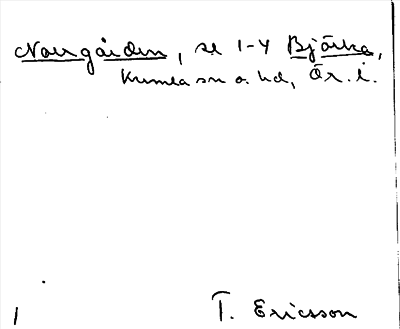 Norrgården, se 1-4 Björka,
Kumla sn o. hd, Ör. l.
T. Ericsson